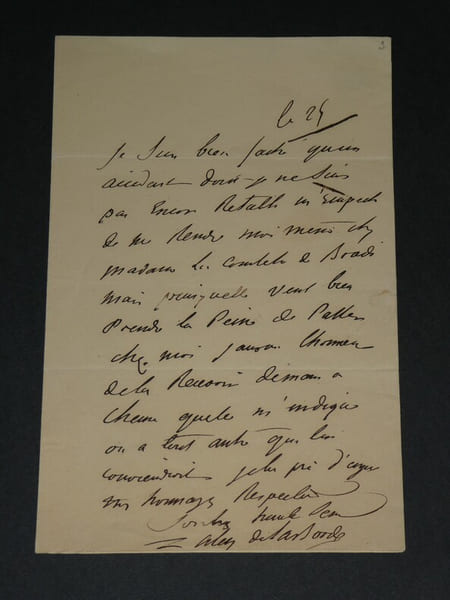 3
le 24
Je suis bien faché qu'un
accident dont je ne suis
pas Encor Retabli m'Empech
de me Rendre moi même chez
madame La comtesse de Bradi
mais puisquelle veut bien
Prendre la Peine de Passer
chez moi jaurai L'honneur
de la Recevoir demain a
l'heure quelle m'indique
ou a tout autre qui lui
conviendroit je la prie d'agréer
mes hommages Respectueux
Son très humble Serv
Alex de LaBorde